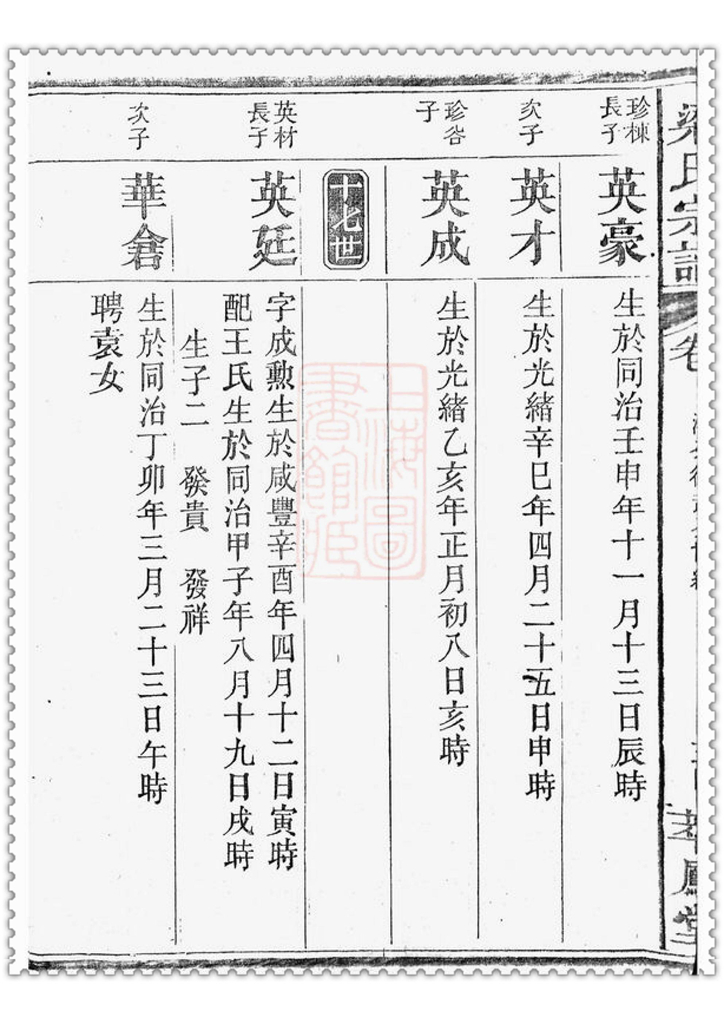 梁氏宗譜
卷
華鳳堂
珍棟
長子
英豪
生於同治壬申年十一月十三日辰時
次子
英才
生於光緒辛巳年四月二十五日申時
珍咎
子
英成
生於光緒乙亥年正月初八日亥時
十七世
英材
長子
英廷
字成勲生於咸豐辛酉年四月十二日寅時
配王氏生於同治甲子年八月十九日戌時
生子二 發貴 發祥
次子
華倉
生於同治丁卯年三月二十三日午時
聘袁女
上海圖
書館